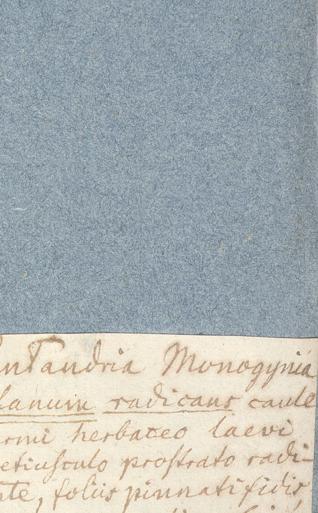 ntandria Monogynia
lanum radicans caule
ermi herbaceo laevi
etiusculo prostrato radi-
nte, foliis pinnatifidis